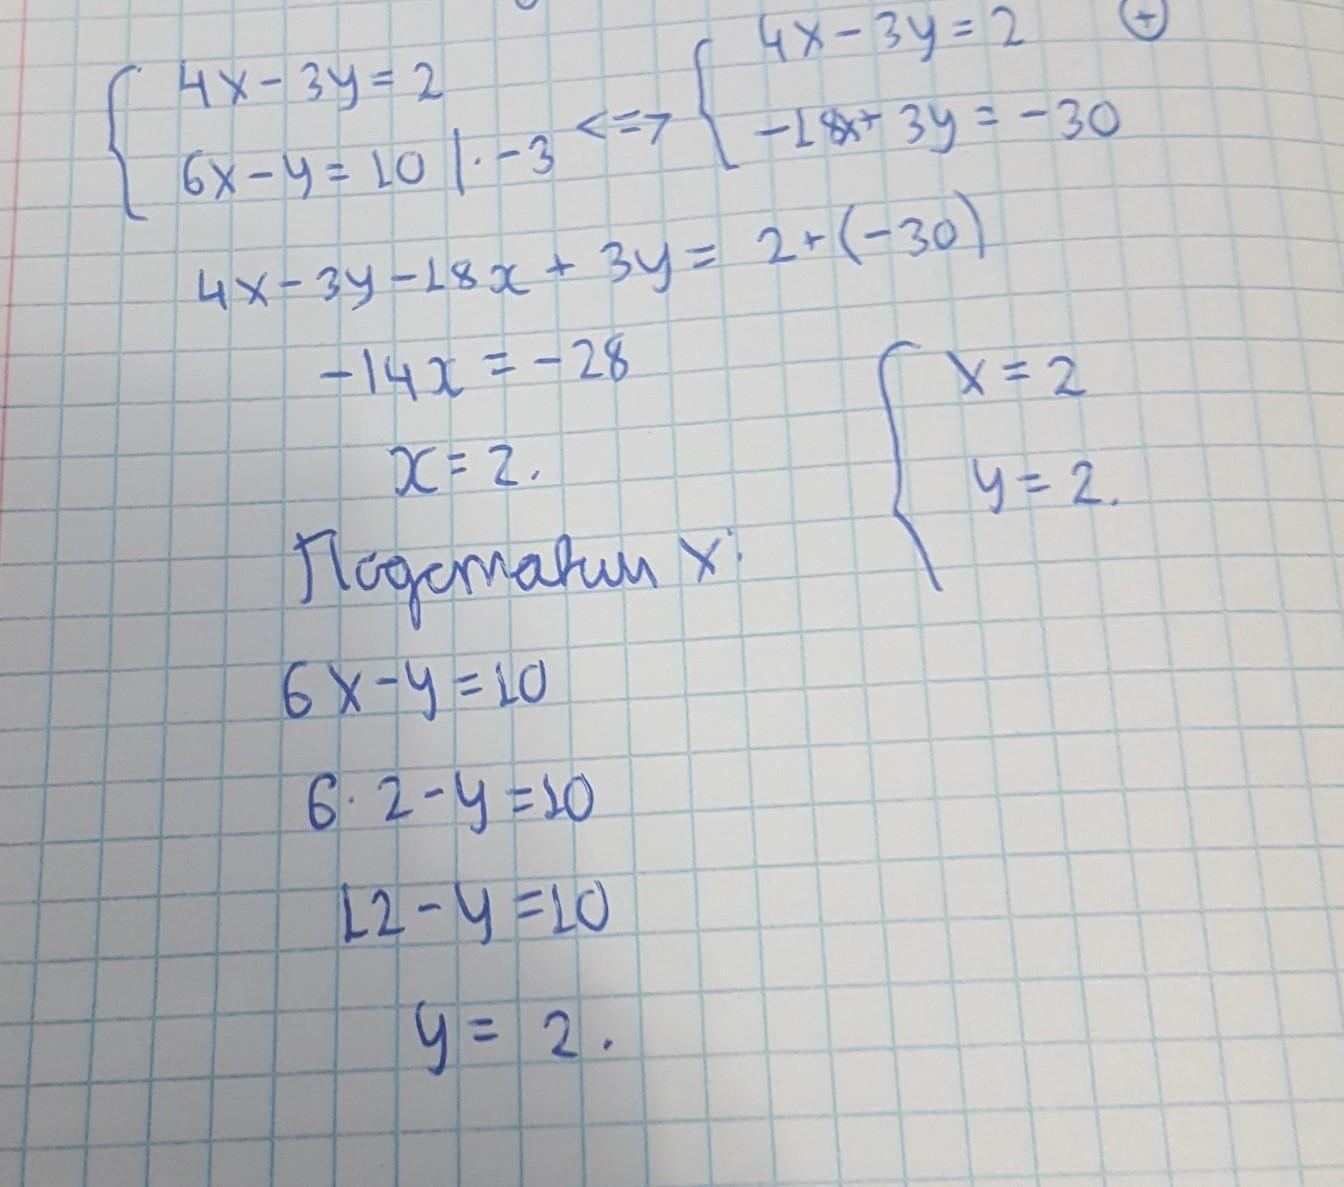 4x - 3y = 2
6x - y = 10 | · -3
<=>
4x - 3y = 2
-18x + 3y = -30
+
4x - 3y - 18x + 3y = 2 + (-30)
-14x = -28
x = 2.
Подставим x:
6x - y = 10
6 · 2 - y = 10
12 - y = 10
y = 2.
x = 2
y = 2.